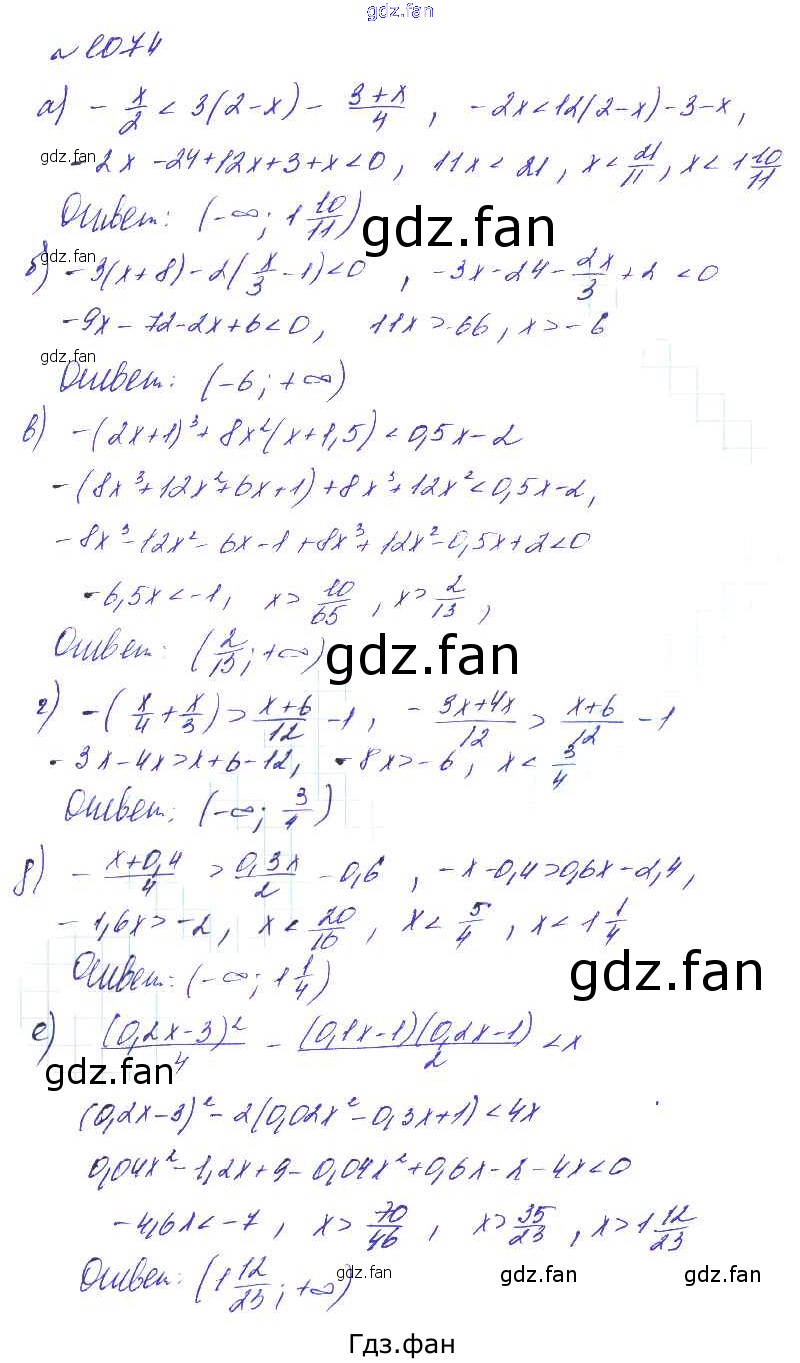 gdz.fan
№ 1074
а) - x/2 < 3(2-x) - (3+x)/4 , -2x<12(2-x)-3-x,
gdz.fan
-2x -24+12x+3+x<0, 11x<21, x<21/11, x<1 10/11
Ответ: (-∞; 1 10/11)
gdz.fan
gdz.fan
б) -3(x+8)-2(x/3-1)<0 , -3x-24-2x/3+2<0
-9x-72-2x+6<0, 11x>-66, x>-6
gdz.fan
Ответ: (-6; +∞)
в) -(2x+1)³+8x²(x+1,5)<0,5x-2
-(8x³+12x²+6x+1)+8x³+12x²<0,5x-2,
-8x³-12x²-6x-1+8x³+12x²-0,5x+2<0
-6,5x<-1, x>10/65, x>2/13,
Ответ: (2/13; +∞)
gdz.fan
г) -(x/4+x/3)>(x+6)/12-1, -(3x+4x)/12>(x+6)/12-1
-3x-4x>x+6-12, -8x>-6, x<3/4
Ответ: (-∞; 3/4)
д) -(x+0,4)/4>0,3x/2-0,6 , -x-0,4>0,6x-2,4,
-1,6x>-2, x<20/16, x<5/4, x<1 1/4
Ответ: (-∞; 1 1/4)
gdz.fan
е) (0,2x-3)²/4-(0,1x-1)(0,2x-1)/2<x
gdz.fan
(0,2x-3)²-2(0,02x²-0,3x+1)<4x
0,04x²-1,2x+9-0,04x²+0,6x-2-4x<0
-4,6x<-7, x>70/46, x>35/23, x>1 12/23
Ответ: (1 12/23; +∞)
gdz.fan
gdz.fan
gdz.fan
Гдз.фан